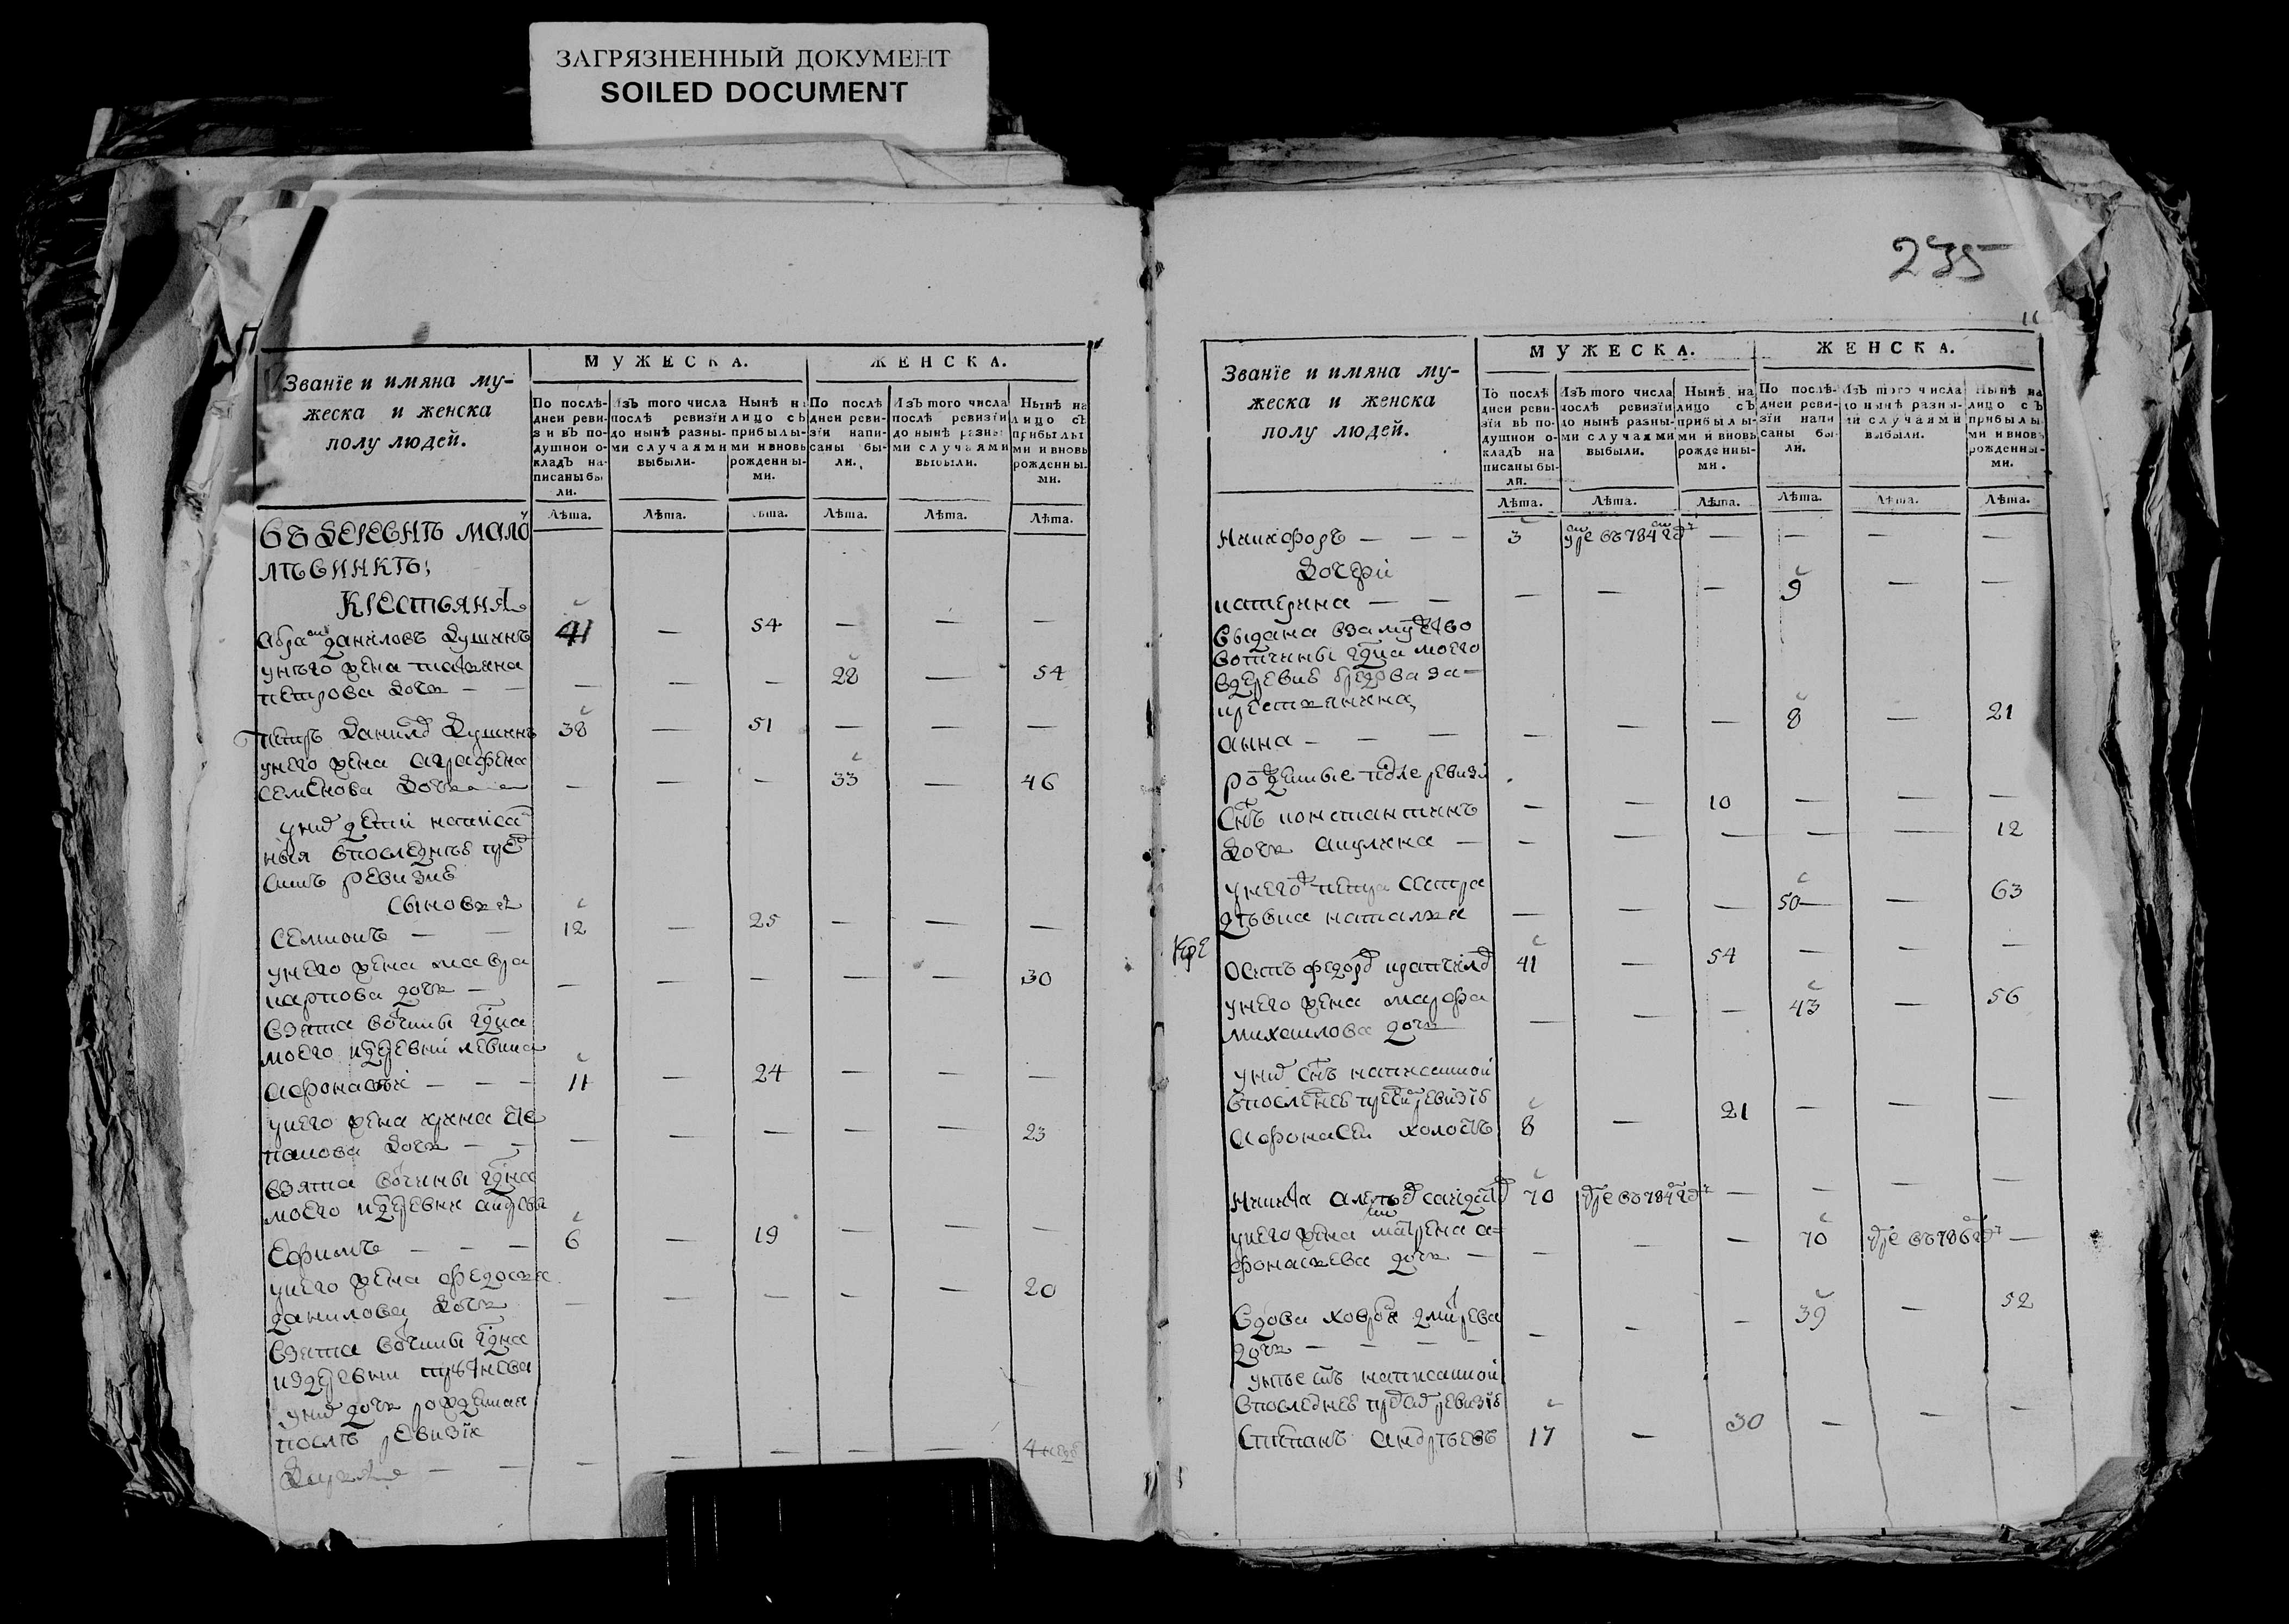 ЗАГРЯЗНЕННЫЙ ДОКУМЕНТ
SOILED DOCUMENT
Званїе и имяна му-
жеска и женска
полу людей.
МУЖЕСКА.
ЖЕНСКА.
По послѣ-
дней реви-
зіи вЪ по-
душной о-
кладЪ на-
писаны бы-
ли.
ИзЪ того числа
послѣ ревизїи
до нынѣ разны-
ми случаями
выбыли.
Нынѣ на
лицо сЪ
прибылы-
ми и вновь
рожденны-
ми.
По послѣ
дней реви-
зїи напи-
саны бы-
ли.
ИзЪ того числа
послѣ ревизїи
до нынѣ разны
ми случаями
выбыли.
Нынѣ на
лицо сЪ
прибылы
ми и вновь
рожденны-
ми.
Лѣта. Лѣта. Лѣта. Лѣта. Лѣта. Лѣта.
въ деревнѣ мало
лѣвинкѣ;
крестьяня
абрамъ даниловъ 41 — 54 — — —
у него жена татьяна
петрова дочь — — — — — 28 — 54
петръ данилов 38 — 51 — — —
у него жена аграфена
семенова дочь — — — 33 — 46
у них дети написа
ныя в последнѣе пред
сим ревизие
сыновья
семионъ — — 12 — 25 — — —
у него жена мавра
карпова дочь — — — — — — 30
взята вотчины гдна
моего из деревни левина
афонасей — — — 11 — 24 — — —
у него жена
дочь — — — — — — — 23
взята вотчины гдна
моего из деревни
ефимъ — — — 6 — 19 — — —
у него жена федосья
данилова дочь — — — — — 20
взята вотчины гдна
из деревни
у них дочь рожденная
послѣ ревизїи
дарья — — — — — — — 4 неде
235
11
Званїе и имяна му-
жеска и женска
полу людей.
МУЖЕСКА.
ЖЕНСКА.
По послѣ
дней реви-
зїи вЪ по-
душной о-
кладЪ на
писаны бы-
ли.
ИзЪ того числа
послѣ ревизїи
до нынѣ разны-
ми случаями
выбыли.
Нынѣ на
лицо сЪ
прибылы-
ми и вновь
рожденны-
ми.
По послѣ-
дней реви-
зїи напи
саны бы-
ли.
ИзЪ того числа
до нынѣ разны-
ми случаями
выбыли.
Нынѣ на
лицо сЪ
прибылы
ми и вновь
рожденны-
ми.
Лѣта. Лѣта. Лѣта. Лѣта. Лѣта. Лѣта.
никифоръ — — — 3 умре въ 784 год — — — —
дочери
катерина — — — — — 9 — —
выдана в замужство
вотчины гдна моего
в деревне за
крестьянина
анна — — — — — — 8 — 21
рожденные после ревизи
снъ констант­инъ — — 10 — — —
дочь акулина — — — — — — 12
у него петра сестра
дѣвка наталья — — — 50 — 63
Кре
осипъ федоров 41 — 54 — — —
у него жена марфа
михаилова дочь — — — 43 — 56
у них снъ написанной
в последнее пред сим ревизїе
афонасей холостъ 8 — 21 — — —
никита 70 умре въ 784 год — — — —
у него жена матрена а-
фонасьева дочь — — — — 70 умре въ 786 год —
вдова
дочь — — — — — — — 39 — 52
у нее снъ написанной
в последнее пред сим ревизїе
степанъ андрѣевъ 17 — 30 — — —